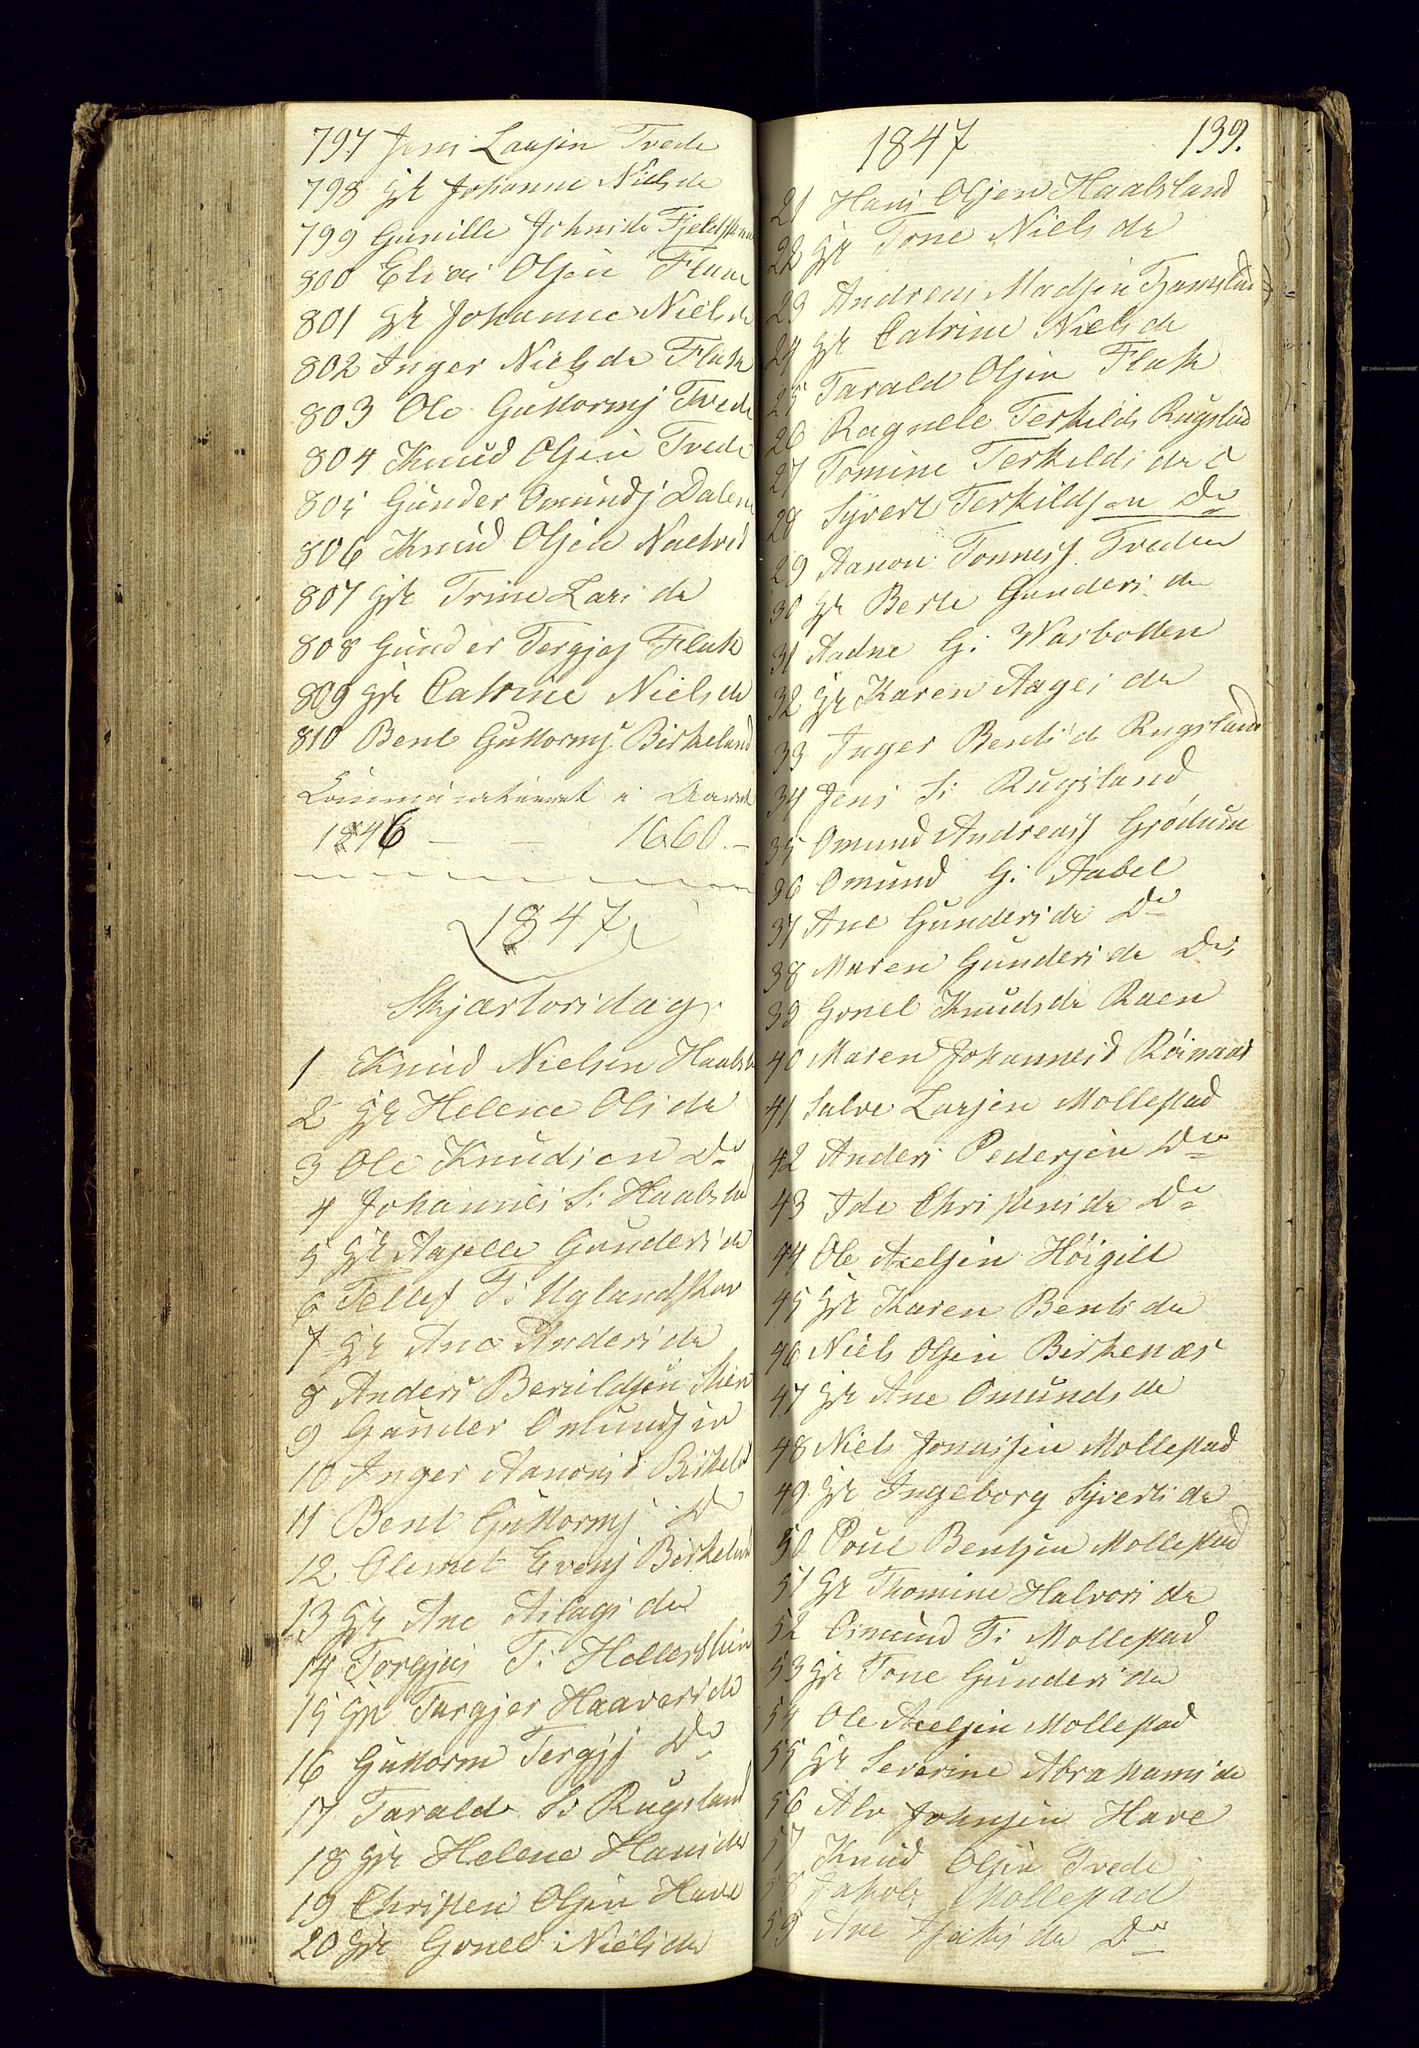 797 Jens Larsen Tvede
798 gk Johanne Nielsda
799 Gunille Johnsda
800 Elias Olsen Flaa
801 gk Johanne Nielsda
802 Inger Nielsda Flak
803 Ole Guttormsj Tvede
804 Knud Olsen Tvede
805 Gunder Omundsj Dalen
806 Knud Olsen
807 gk Trine Larsda
808 Gunder Tergjesj Flak
809 gk Catrine Nielsda
810 Bent Guttormsj Birkeland
i Aaret
1846 — — 1660.—
1847
Skjærtorsdag
1 Knud Nielsen Haabst
2 gk Helene Olsda
3 Ole Knudsen Do
4 Johannes S: Haabstad
5 gk Aselle Gundersda
6 Tellef T: Uglandsklev
7 gk Ane Andersda
8 Anders
9 Gunder Omundsen
10 Inger Aanonsd Birkeld
11 Bent Guttormsj Do
12 Clemet Evensj Birkeland
13 gk Ane Aslagsda
14 Torgjus T:
15 gk Targjer Haaversda
16 Guttorm Tergjsj Do
17 Tarald S: Rugsland
18 gk Helene Hansda
19 Christen Olsen Have
20 gk Gonel Nielsda
1847 139.
21 Hans Olsen Haabsland
22 gk Tone Nielsda
23 Andreas Madsen
24 gk Catrine Nielsda
25 Tarald Olsen Flak
26 Ragnele Terkilds Rugslad
27 Tomine Terkildsda
28 Syvert Terkildsen Do
29 Aanon Tonnesj Tveden
30 gk Berte Gundersda
31 Aadne G: Warbotten
32 gk Karen Aagesda
33 Inger Bentsd Rugsland
34 Jens S: Rugsland
35 Omund Andreasj Grødum
36 Omund G: Aabel
37 Ane Gundersda Do
38 Maren Gundersda Do
39 Gonel Knudsda Raen
40 Maren Johannesd Røinaas
41 Salve Larsen Mollestad
42 Anders Pedersen Do
43 Ide Christensda Do
44 Ole Axelsen Høigilt
45 gk Karen Bentsda
46 Niels Olsen Birkenæs
47 gk Ane Omundsda
48 Niels Jonassen Mollestad
49 gk Ingeborg Syvertsda
50 Poul Bentsen Mollestad
51 gk Thomine Halvorsda
52 Osmund T: Mollestad
53 gk Tone Gundersda
54 Ole Axelsen Mollestad
55 gk Severine Abrahamsda
56 Alv Johnsen Have
57 Knud Olsen Tvede
58 Jakob Mollestad
59 Ane Da